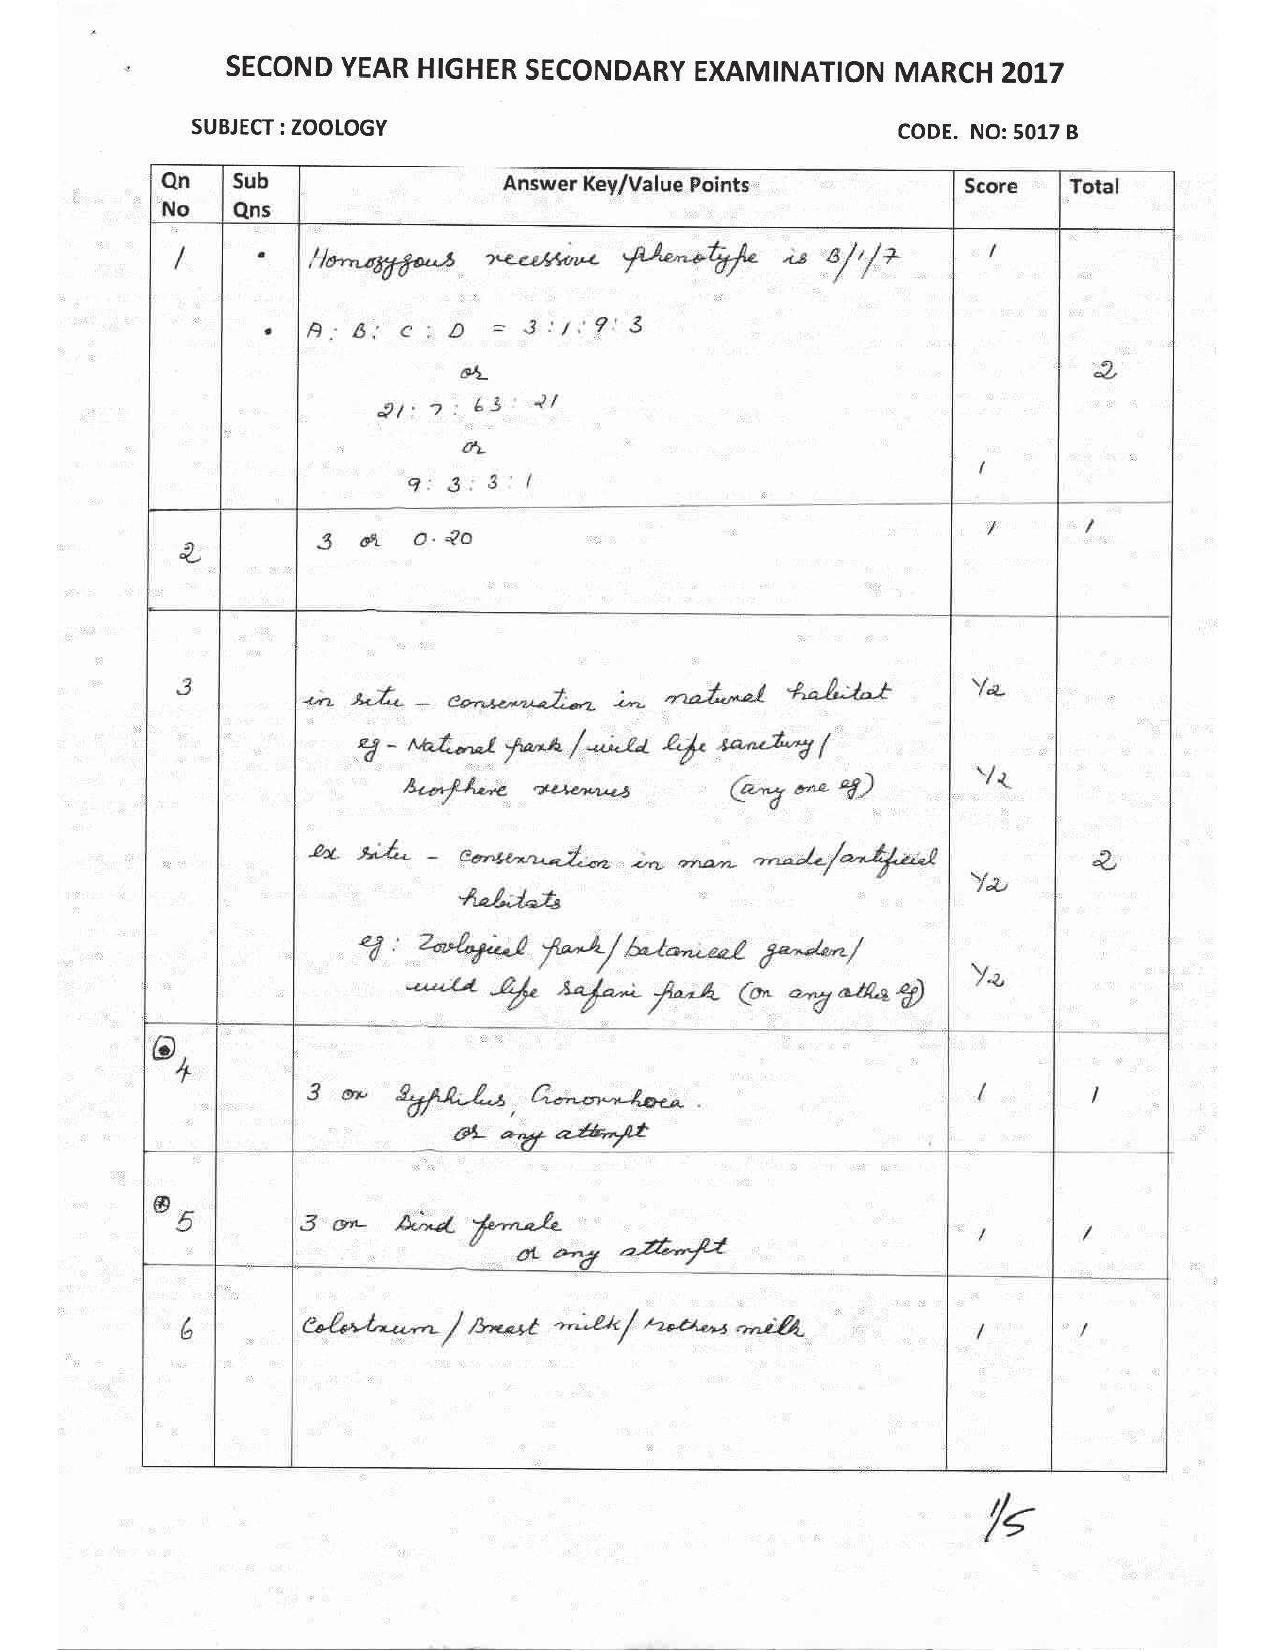 SECOND YEAR HIGHER SECONDARY EXAMINATION MARCH 2017
SUBJECT : ZOOLOGY CODE. NO: 5017 B
Qn No Sub Qns Answer Key/Value Points Score Total
1 • Homozygous recessive phenotype is B/1/7 1
• A : B : C : D = 3 : 1 : 9 : 3
or 2
21 : 7 : 63 : 21
or
9 : 3 : 3 : 1 1
2 3 or 0.20 1 1
3 in situ – conservation in natural habitat 1/2
eg – National park / wild life sanctury /
Biosphere reserves (any one eg) 1/2
ex situ – conservation in man made/artificial 2
habitats 1/2
eg : Zoological park / botanical garden /
wild life safari park (or any other eg) 1/2
4 3 or Syphilus, Gonorrhoea . 1 1
or any attempt
5 3 or Bird female 1 1
or any attempt
6 Colostrum / Breast milk / Mothers milk 1 1
1/5